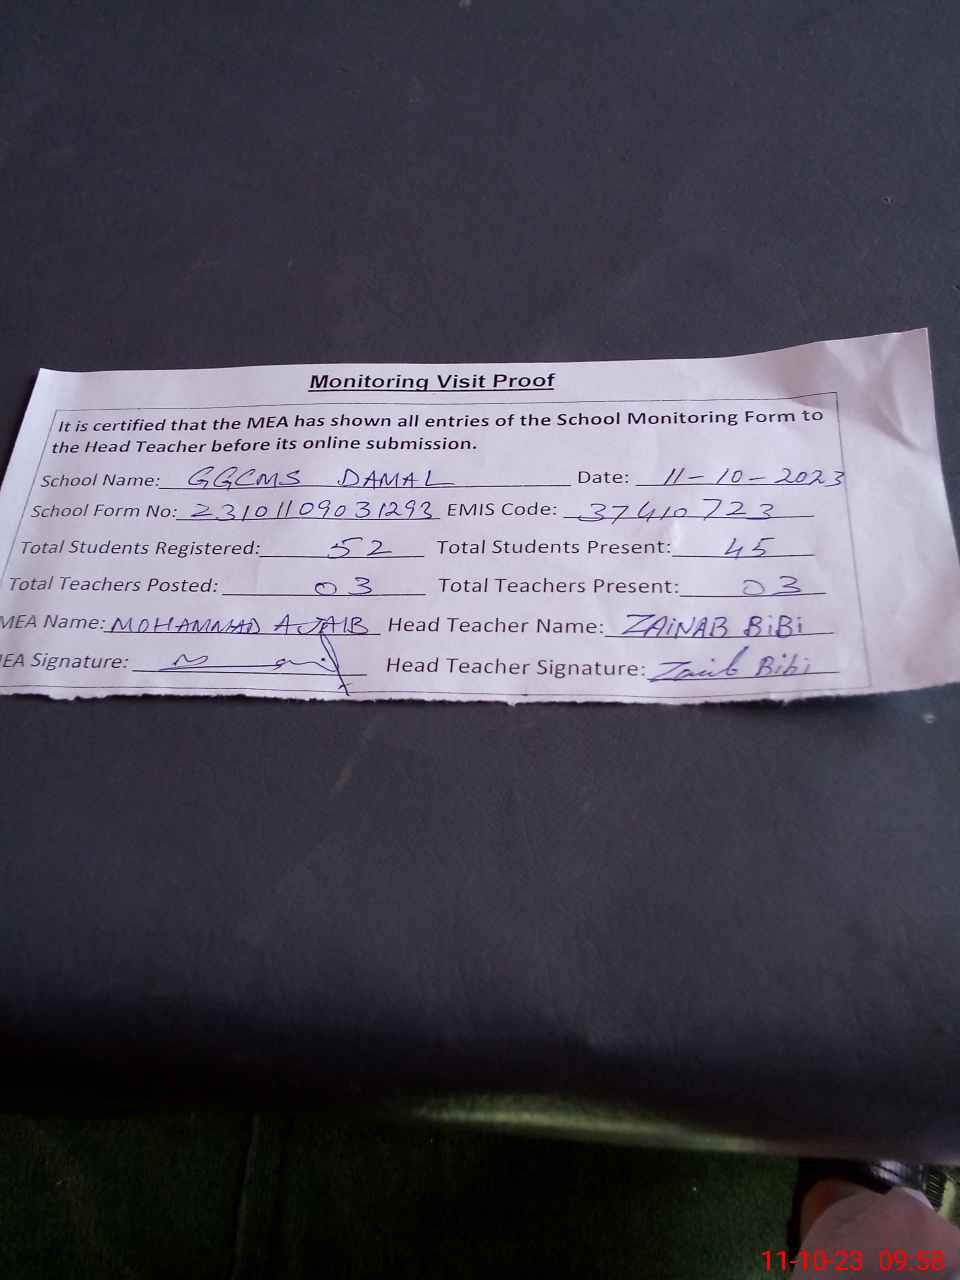 Monitoring Visit Proof
It is certified that the MEA has shown all entries of the School Monitoring Form to
the Head Teacher before its online submission.
School Name: GGCMS DAMAL Date: 11-10-2023
School Form No: 23101109031293 EMIS Code: 37410723
Total Students Registered: 52 Total Students Present: 45
Total Teachers Posted: 03 Total Teachers Present: 03
MEA Name: MOHAMMAD AJAIB Head Teacher Name: ZAiNAB BiBi
MEA Signature: Head Teacher Signature: Zainb Bibi
11-10-23 09:58